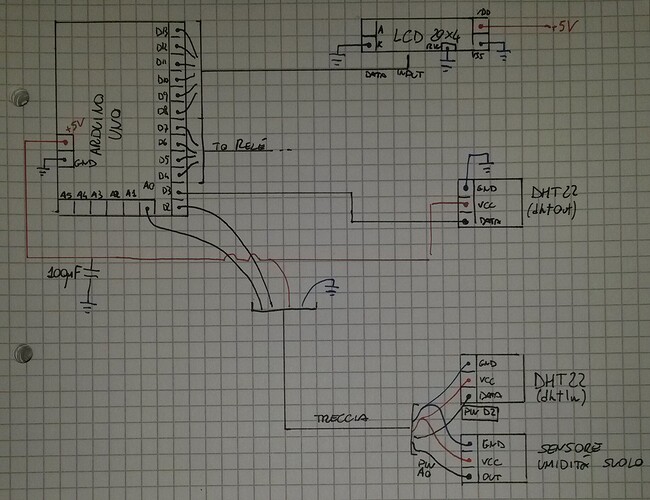 D13
D12
D11
D10
D9
D8
D7
D6
D5
D4
D3
D2
ARDUINO
UNO
+5V
GND
A5 A4 A3 A2 A1 A0
A
K
LCD 20x4
R/W
VDD
VSS
+5V
DATA INPUT
TO RELÉ...
GND
VCC
DATA
DHT22
(dhtOut)
100µF
TRECCIA
GND
VCC
DATA
DHT22
(dhtIn)
PIN D2
PIN
A0
GND
VCC
OUT
SENSORE
UMIDITÀ SUOLO